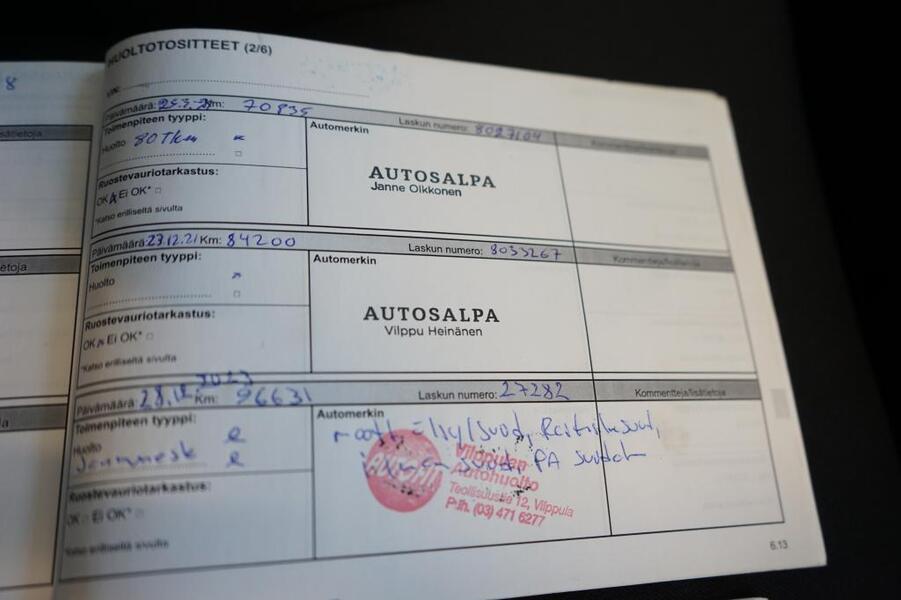 8
HUOLTOTOSITTEET (2/6)
VIN:
Päivämäärä: Km: 70835 Laskun numero: 8027104
Toimenpiteen tyyppi:
Huolto 80Tkm
Automerkin
AUTOSALPA
Janne Olkkonen
Ruostevauriotarkastus:
OK Ei OK*
*Katso erilliseltä sivulta
Päivämäärä: 23.12.21 Km: 84200 Laskun numero: 8033267 Kommentteja/lisätietoja
Toimenpiteen tyyppi:
Huolto
Automerkin
AUTOSALPA
Vilppu Heinänen
Ruostevauriotarkastus:
OK Ei OK*
*Katso erilliseltä sivulta
Päivämäärä: 2023 Km: 96631 Laskun numero: 27282 Kommentteja/lisätietoja
Toimenpiteen tyyppi:
Huolto
Automerkin
PA
Vilppulan
Autohuolto
Teollisuustie 12, Vilppula
Puh. (03) 471 6277
Ruostevauriotarkastus:
OK Ei OK*
*Katso erilliseltä sivulta
6.13